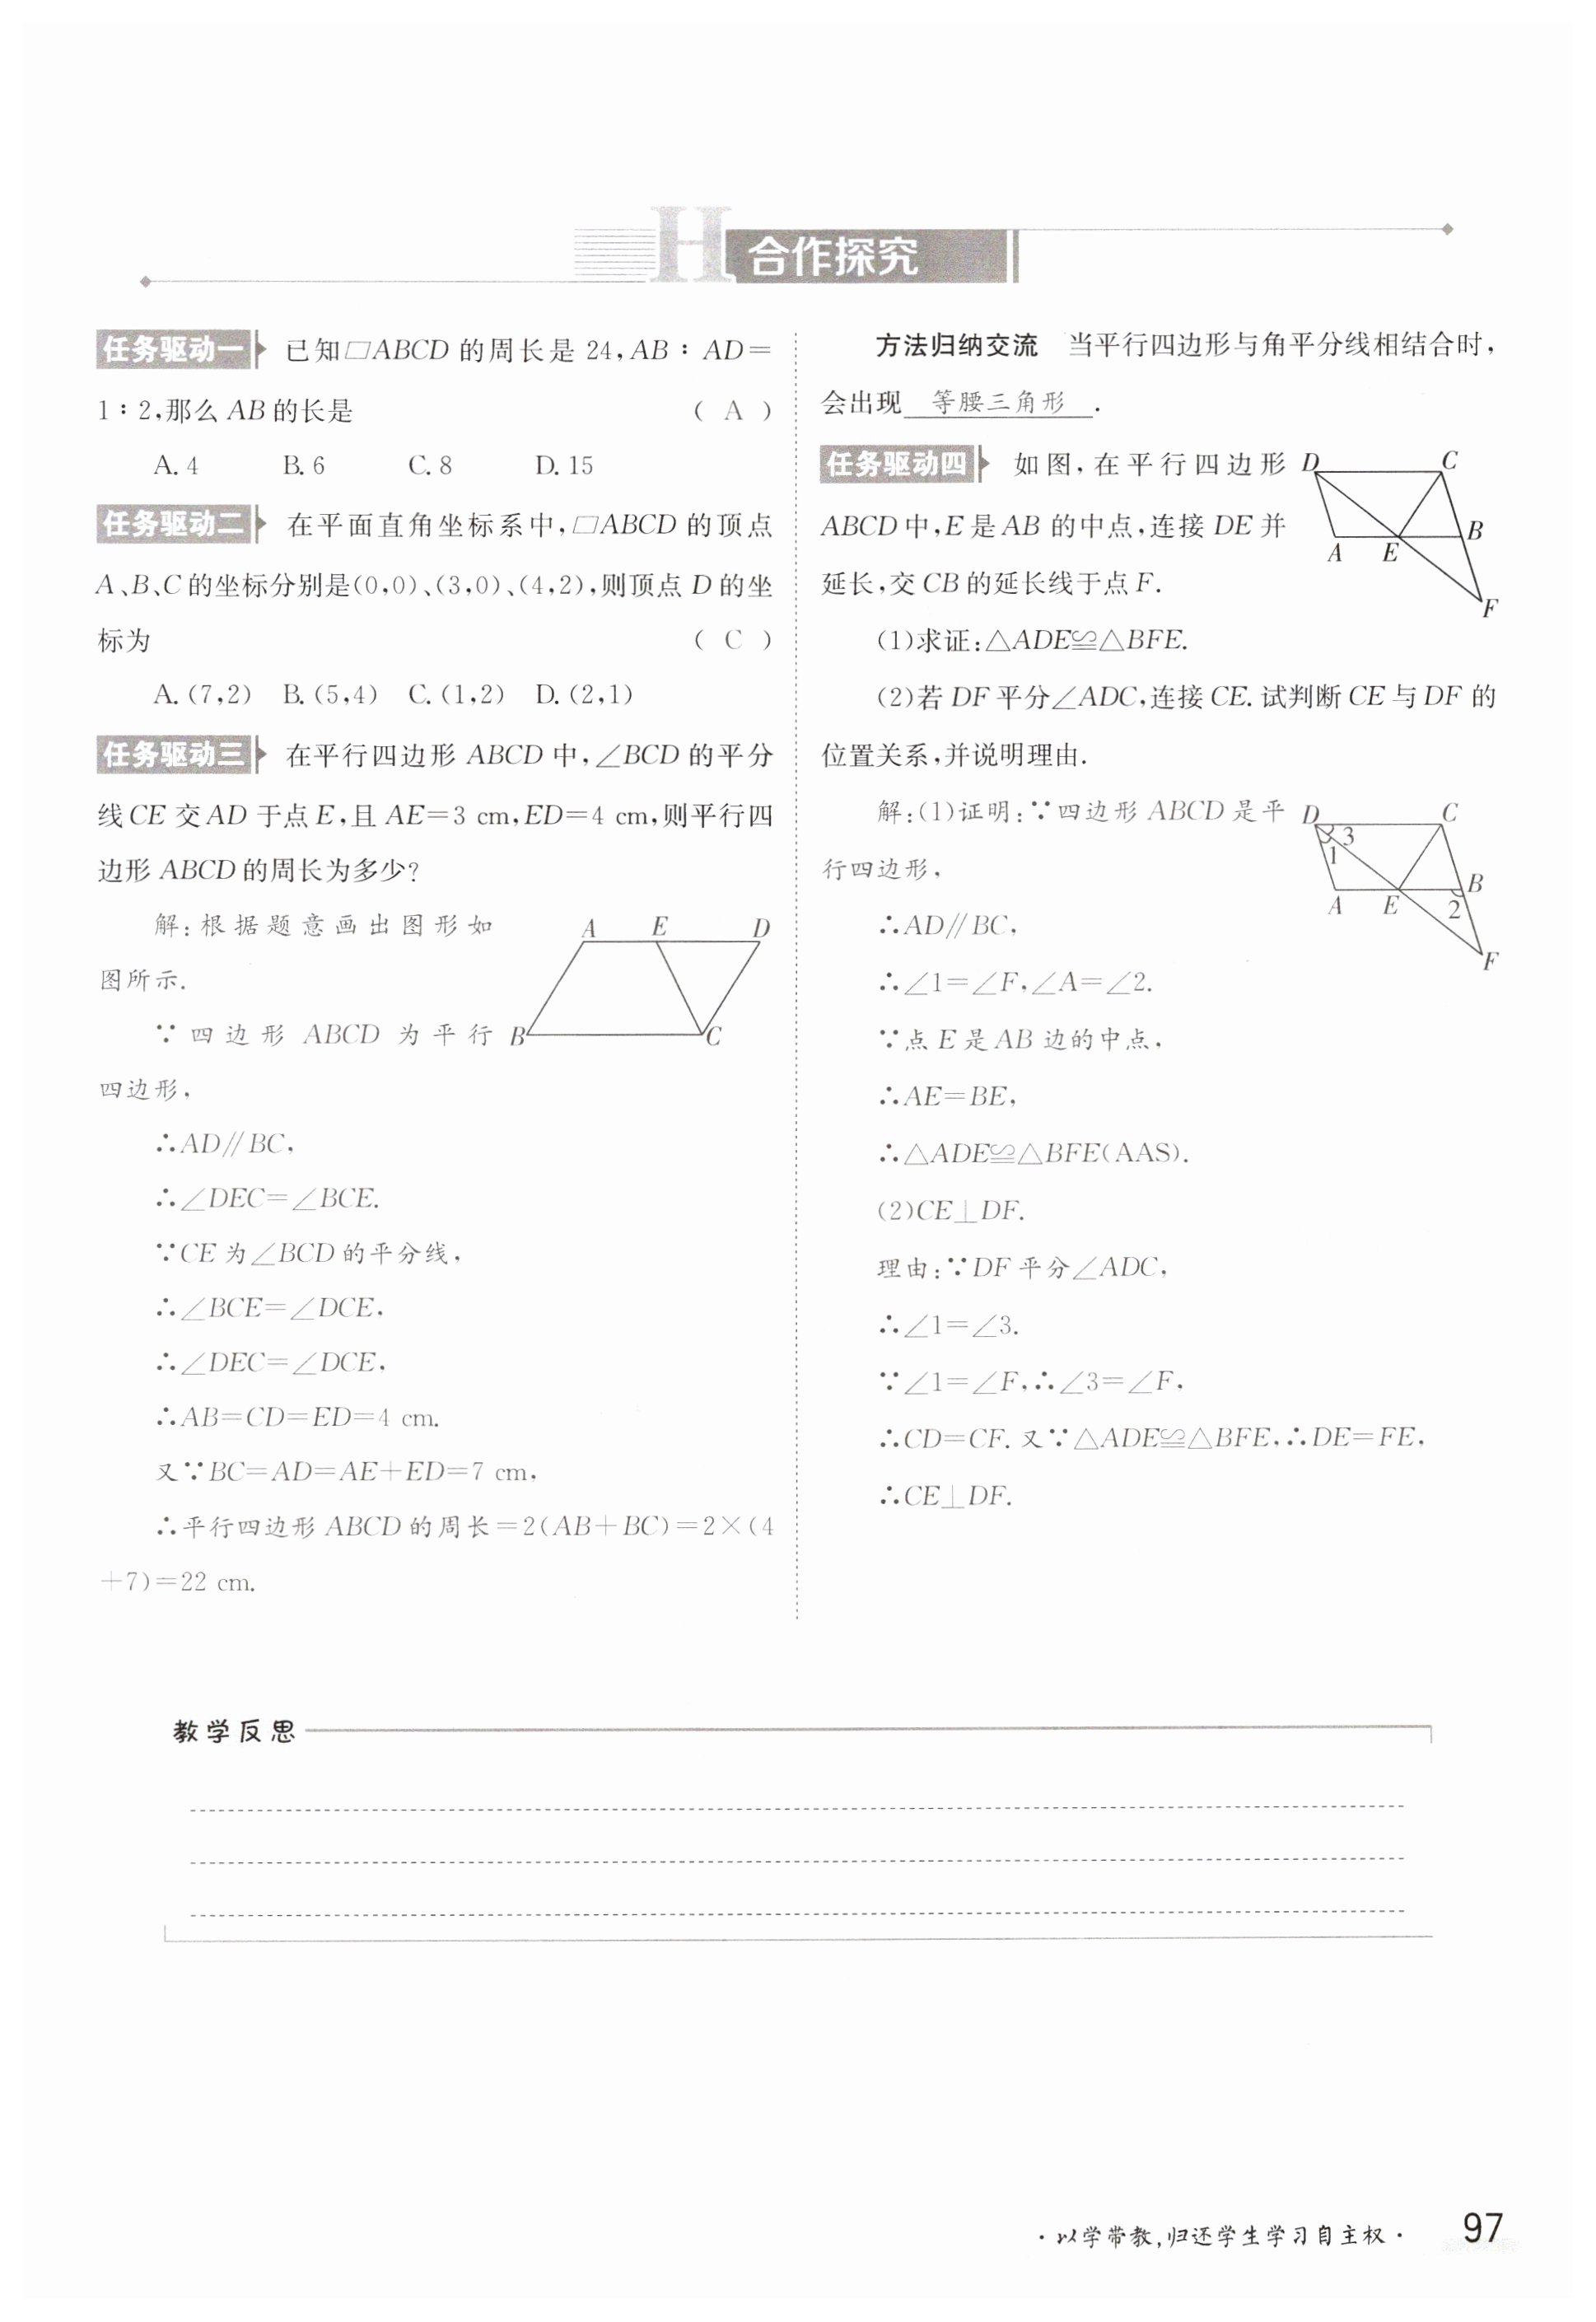 H 合作探究
任务驱动一 已知□ABCD 的周长是 24,AB∶AD=
1∶2,那么 AB 的长是 ( A )
A. 4 B. 6 C. 8 D. 15
任务驱动二 在平面直角坐标系中,□ABCD 的顶点
A、B、C 的坐标分别是(0,0)、(3,0)、(4,2),则顶点 D 的坐
标为 ( C )
A. (7,2) B. (5,4) C. (1,2) D. (2,1)
任务驱动三 在平行四边形 ABCD 中,∠BCD 的平分
线 CE 交 AD 于点 E,且 AE=3 cm,ED=4 cm,则平行四
边形 ABCD 的周长为多少?
解:根据题意画出图形如
图所示.
∵四边形 ABCD 为平行
四边形,
A E D
B C
∴AD∥BC,
∴∠DEC=∠BCE.
∵CE 为∠BCD 的平分线,
∴∠BCE=∠DCE,
∴∠DEC=∠DCE,
∴AB=CD=ED=4 cm.
又∵BC=AD=AE+ED=7 cm,
∴平行四边形 ABCD 的周长=2(AB+BC)=2×(4
+7)=22 cm.
方法归纳交流 当平行四边形与角平分线相结合时,
会出现 等腰三角形 .
任务驱动四 如图,在平行四边形
ABCD 中,E 是 AB 的中点,连接 DE 并
延长,交 CB 的延长线于点 F.
D C
A E B
F
(1)求证:△ADE≌△BFE.
(2)若 DF 平分∠ADC,连接 CE. 试判断 CE 与 DF 的
位置关系,并说明理由.
解:(1)证明:∵四边形 ABCD 是平
行四边形,
D C
3
1
A E B
2
F
∴AD∥BC,
∴∠1=∠F,∠A=∠2.
∵点 E 是 AB 边的中点,
∴AE=BE,
∴△ADE≌△BFE(AAS).
(2)CE⊥DF.
理由:∵DF 平分∠ADC,
∴∠1=∠3.
∵∠1=∠F,∴∠3=∠F,
∴CD=CF. 又∵△ADE≌△BFE,∴DE=FE,
∴CE⊥DF.
教学反思
·以学带教,归还学生学习自主权· 97